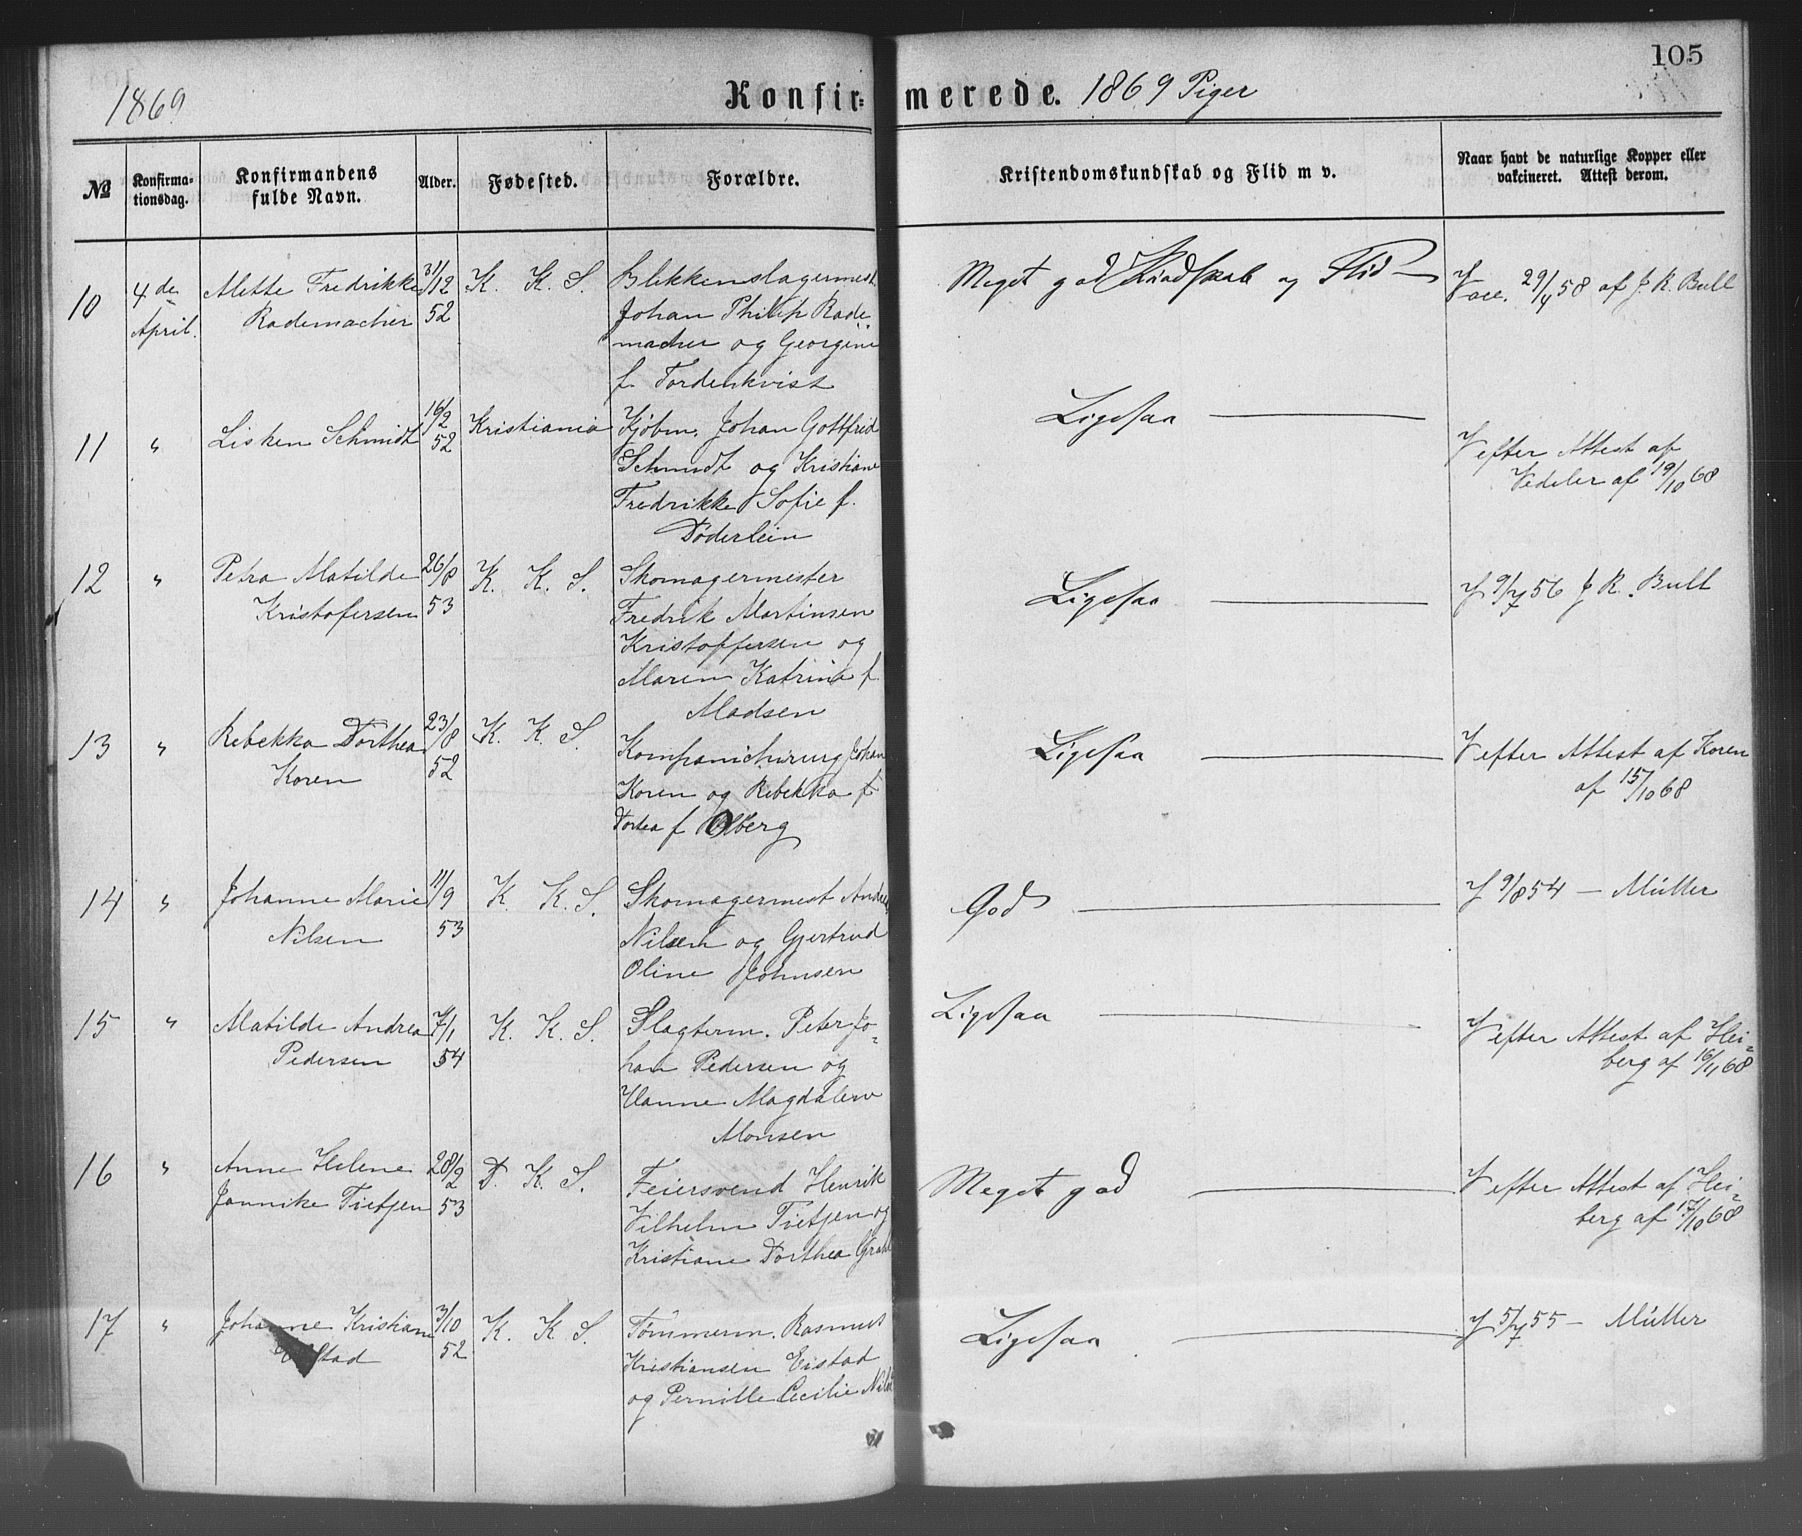 105
1869
Konfirmerede. 1869 Piger
№
Konfirmationsdag.
Konfirmandens fulde Navn.
Alder.
Fødested.
Forældre.
Kristendomskundskab og Flid m v.
Naar havt de naturlige Kopper eller vakcineret. Attest derom.
10 4de Alette Fredrikke 31/12 K. K. S. Blikkenslagermest. Meget god Kundskab og Flid Vacc. 29/4 58 af J. K. Bull
April. Rademacher 52 Johan Philip Rade
macher og Georgine
f. Tordenkvist
11 " Lisken Schmidt 16/2 Kristiania Kjøbm. Johan Gottfried Ligesaa V efter Attest af
52 Schmidt og Kristiane Vedeler af 19/10 68
Fredrikke Sofie f.
Døderlein
12 " Petra Matilde 26/8 K. K. S. Skomagermester Ligesaa V 9/7 56 J K. Bull
Kristofersen 53 Fredrik Martinsen
Kristoffersen og
Maren Katrina f.
Madsen
13 " Rebekka Dorthea 23/8 K. K. S. Kompanichirurg Johan Ligesaa V efter Attest af Koren
Koren 52 Koren og Rebekka f af 15/10 68
Dortea f Olberg
14 " Johanne Marie 11/9 K. K. S. Skomagermest Andreas God V 9/8 54 — Müller
Nilsen 53 Nilsen og Gjertrud
Oline Johnsen
15 " Matilde Andrea 7/1 K. K. S. Slagterm. Peter Jo- Ligesaa V efter Attest af Hei-
Pedersen 54 han Pedersen og berg af 16/11 68
Hanne Magdalene
Monsen
16 " Anne Helene 28/2 D. K. S. Feiersvend Henrik Meget god V efter Attest af Hei-
Jannike Tietjen 53 Vilhelm Tietjen og berg af 17/10 68
Kristiane Dorthea
17 " Johanne Kristiane 3/10 K. K. S. Tømmerm. Rasmus Ligesaa V 5/7 55 — Müller
52 Kristiansen Eistad
og Pernille Cecilie